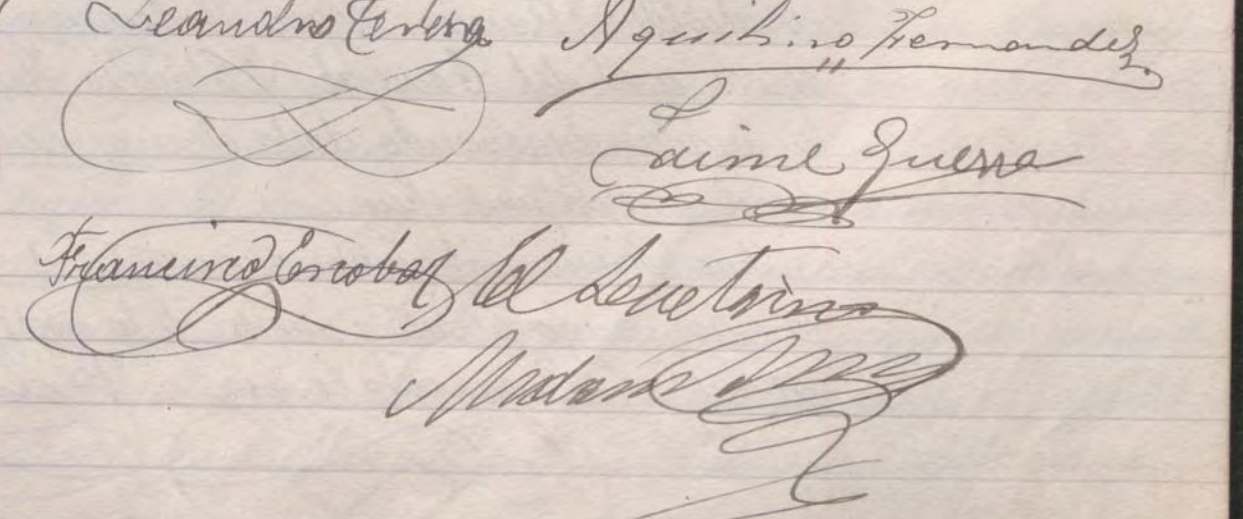 Leandro Aquilino Fernandez
Jaime Guerra
Francisco Escobar El Secretario